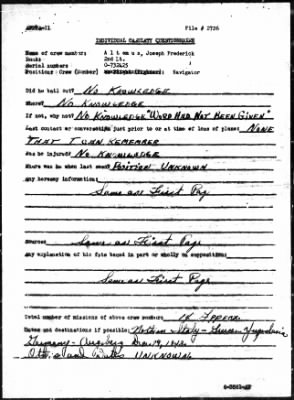 File # 2726
INDIVIDUAL CASUALTY QUESTIONNAIRE
Name of crew member: Altemus, Joseph Frederick
Rank: 2nd Lt.
Serial number: O-732425
Position: Crew (Bomber) Navigator
Did he bail out? No Knowledge
Where? No Knowledge
If not, why not? No Knowledge "Word Had Not Been Given"
Last contact or conversation just prior to or at time of loss of plane: None
That I Can Remember
Was he injured? No Knowledge
Where was he when last seen? Position Unknown
Any hearsay information:
Same as First Pag
Source: Same as First Page
Any explanation of his fate based in part or wholly on supposition:
Same as First Page
Total number of missions of above crew member: 18
Dates and destinations if possible: Northern Italy - Greece - Yugoslavia
Germany - Augsburg Dec. 19, 1943
Unknown